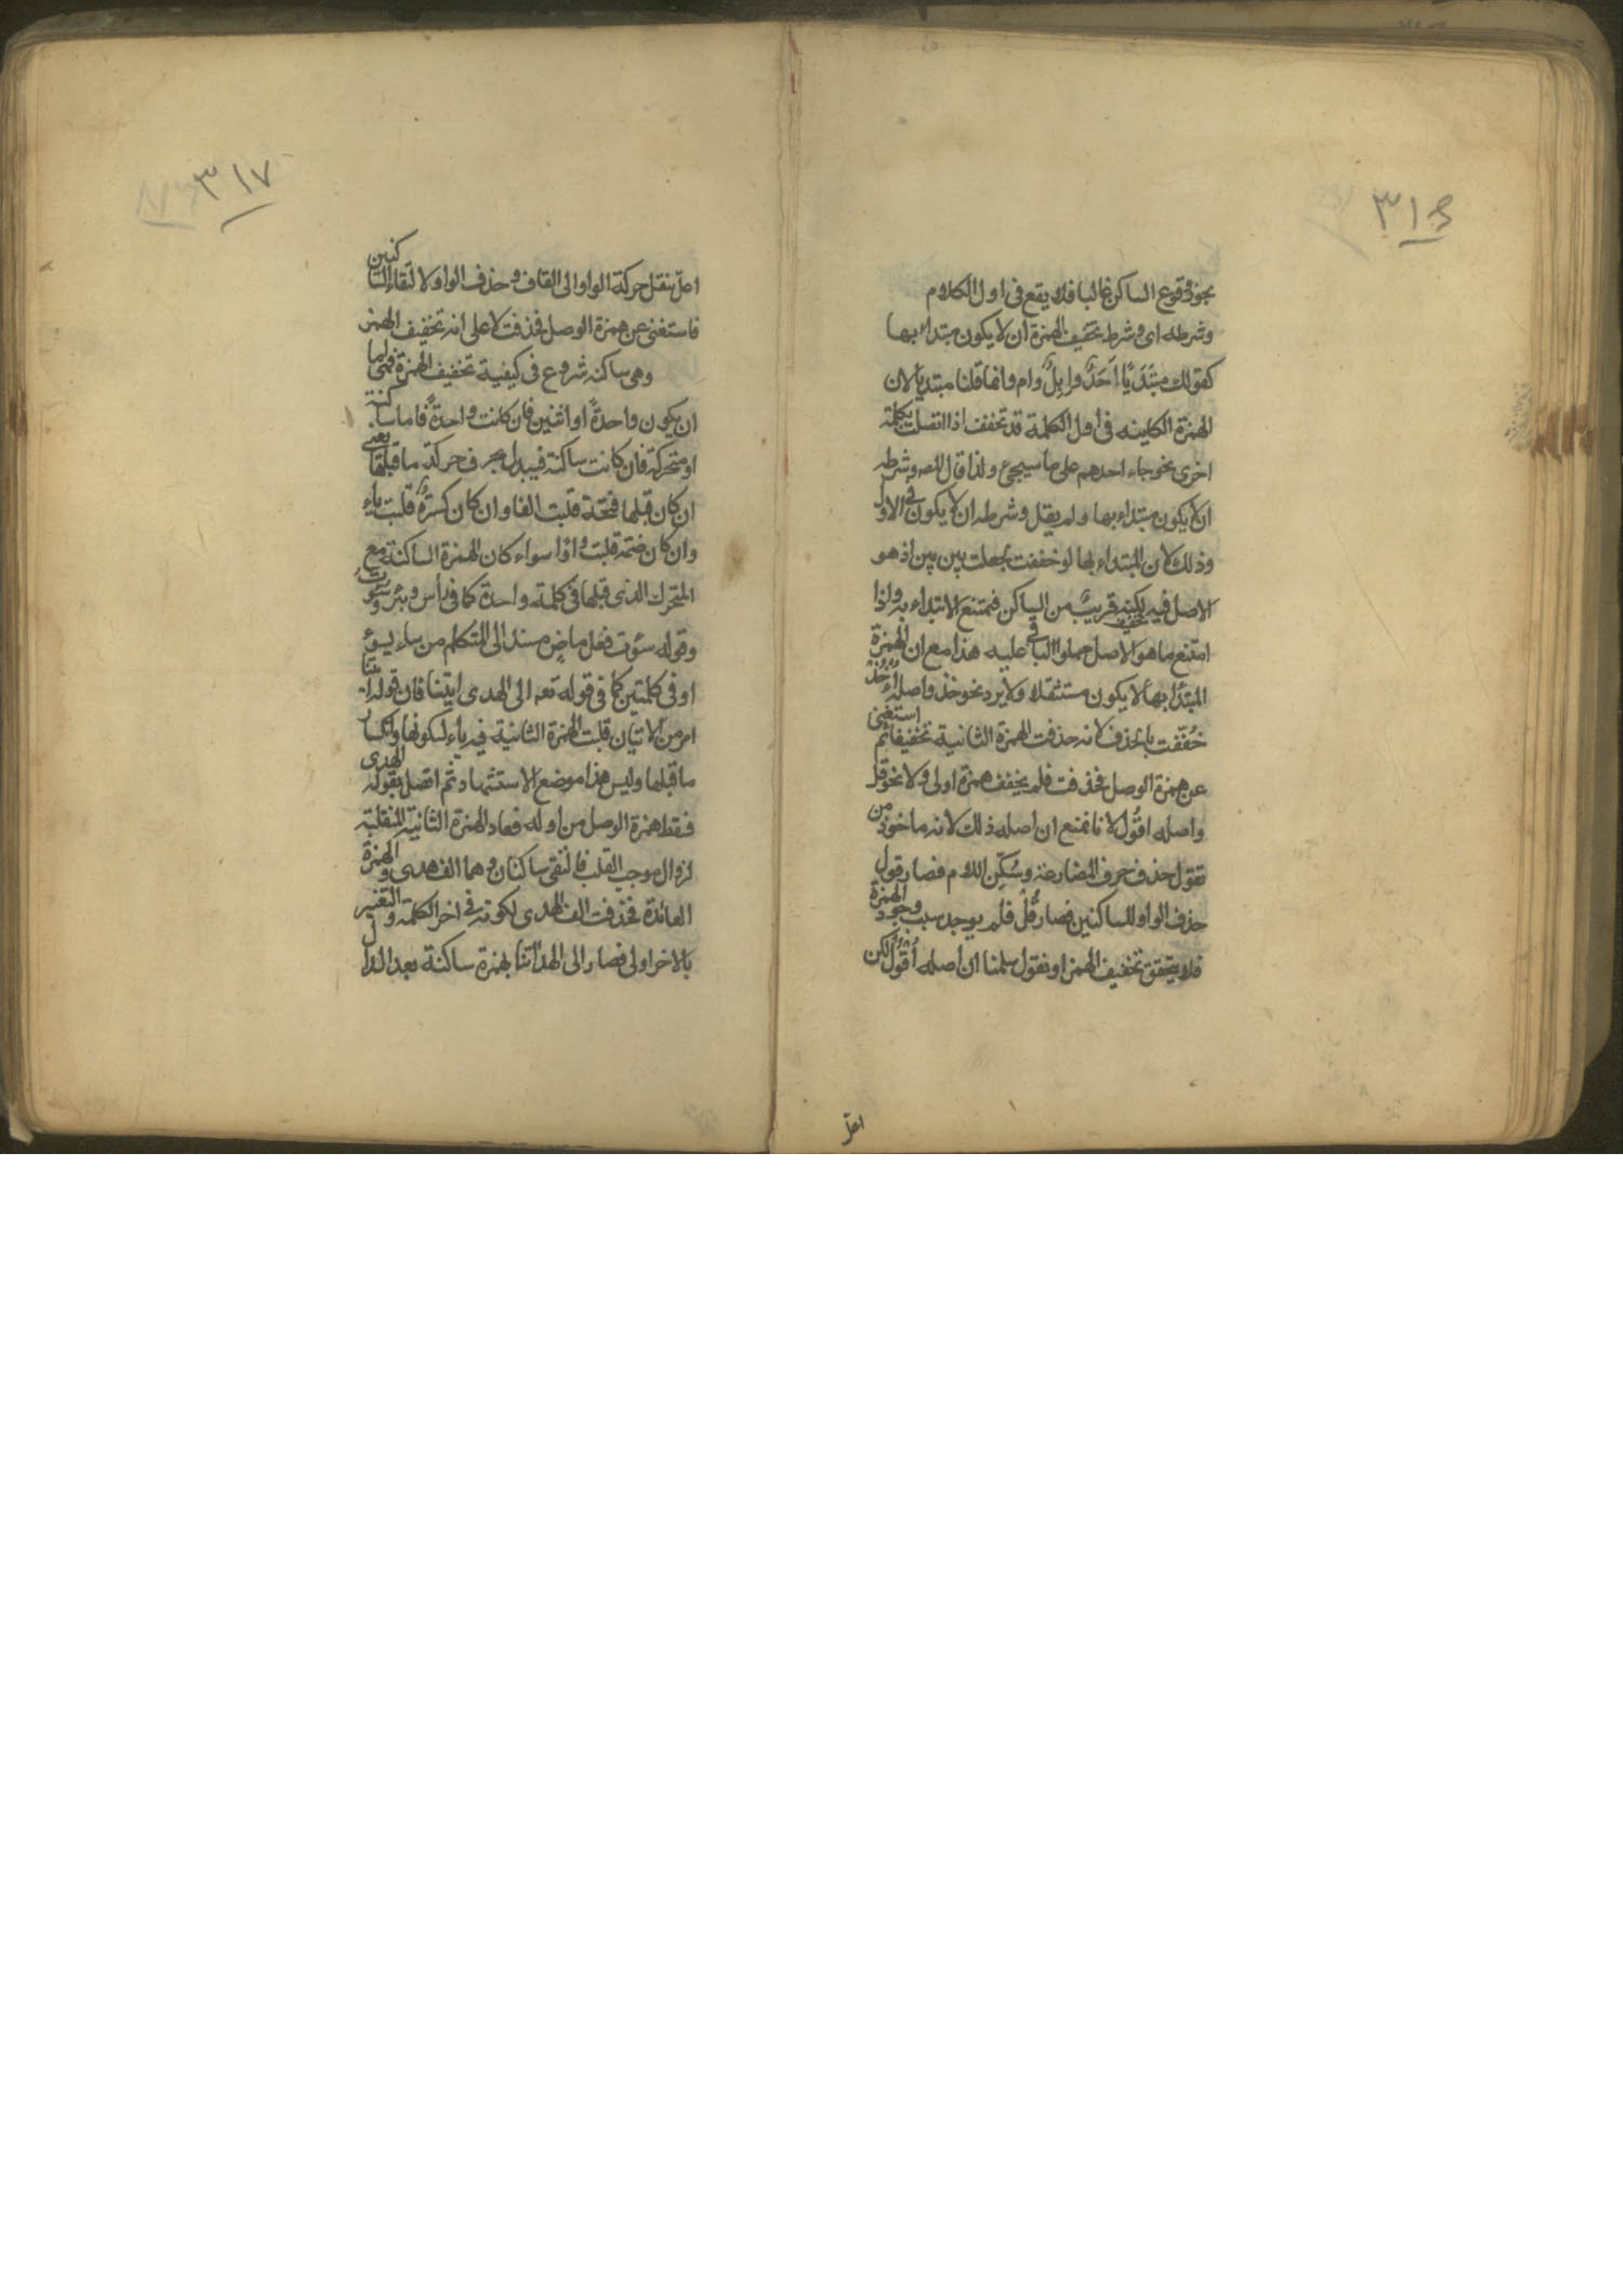 ٣١٦
يجوز وقوع الساكن غالبا فلا يقع فى اول الكلام
وشرطه اى وشرط تخفيف الهمزة ان لا يكون مبتداء بها
كقولك مبتدَيًا اَحَدٌ وابِلٌ وام وانما قلنا مبتديا لان
الهمزة الكاينه فى اول الكلمة قد تخفف اذا اتصلت بكلمة
اخرى نحو جاء احدهم على ما سيجئ ولذا قال المصـ وشرطه
ان لا يكون مبتداء بها ولم يقل وشرطه ان لا يكون فى الاول
وذلك لان المبتداء بها لو خففت لجعلت بين بين اذ هو
الاصل فيه لكنه قريبٌ من الساكن فيمتنع الابتداء به ولذا
امتنع ما هو الاصل حملوا الباقى عليه هذا مع ان الهمزة
المبتدا بها لا يكون مستثقلا ولا يرد نحو خذ واصله اُءْخُذْ
خُفّفت بالحذف لانه حذفت الهمزة الثانية تخفيفا ثم استغنى
عن همزة الوصل فحذفت فلم يخفف همزة اولى ولا نحو قل
واصله اقْوُل لانا نمنع ان اصله ذلك لانه ماخوذ من
تقول حذف حرف المضارعة وسُكّن اللام فصار قول
حذف الواو للساكنين فصار قُلْ فلم يوجد سبب وجود الهمزة
فلا يتحقق تخفيف الهمز او نقول سلمنا ان اصله اُقْوُلْ لكن
اعل
٣١٧
اعلّ بنقل حركة الواو الى القاف وحذف الواو لالتقاء الساكنين
فاستغنى عن همزة الوصل فحذفت لا على انه تخفيف الهمز
وهى ساكنه شروع فى كيفية تخفيف الهمزة فهى اما
ان يكون واحدةً او اثنين فان كانت واحدةً فاما ساكنة
او متحركة فان كانت ساكنة فيبدل بحرف حركة ما قبلها يعنى
ان كان قبلها فتحة قلبت الفا وان كان كسرةً قلبت ياء
وان كان ضمة قلبت واوًا سواء كان الهمزة الساكنة مع
المتحرك الذى قبلها فى كلمة واحدة كما فى رأس وبئر وسُؤت
وقوله سؤت فعل ماضٍ مسند الى المتكلم من ساء يسوء
او فى كلمتين كما فى قوله تعـ الى الهدى ايتنا فان قوله ايتنا
امر من الاتيان قلبت الهمزة الثانية فيه ياء لسكونها وانكسار
ما قبلها وليس هذا موضع الاستشهاد ثم اتصل بقوله الهدى
فسقط همزة الوصل من اوله فعاد الهمزة الثانية المنقلبة
لزوال موجب القلب فالتقى ساكنان وهما الف هدى والهمزة
العائدة فحذفت الف الهدى لكونه فى اخر الكلمة والتغيير
بالاخر اولى فصار الى الهدأتنا بهمزة ساكنة بعد الدال